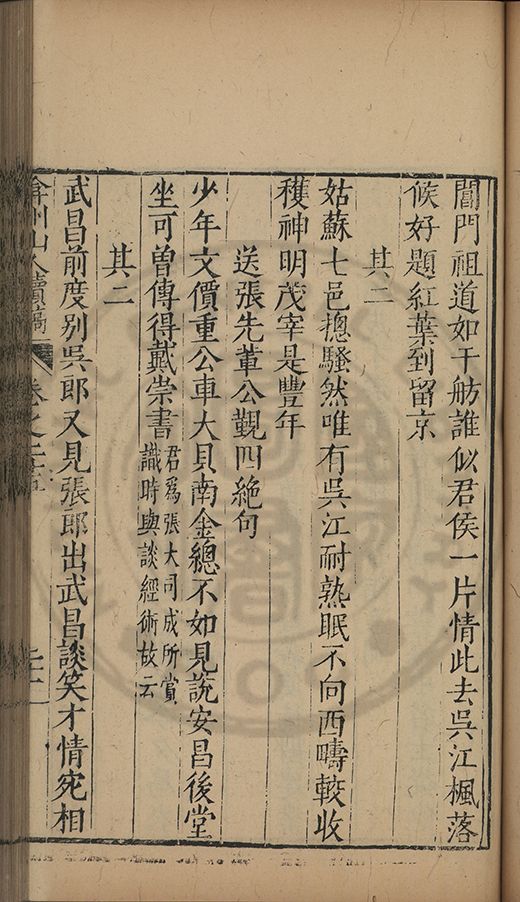 閶門祖道如干舫誰似君侯一片情此去吳江楓落
候好題紅葉到留京
其二
姑蘇七邑摠騷然唯有吳江耐熟眠不向西疇較收
穫神明茂宰是豐年
送張先輩公覲四絶句
少年文價重公車大貝南金總不如見說安昌後堂
坐可曾傳得戴崇書君爲張大司成所賞
識時與談經術故云
其二
武昌前度别吳郎又見張郎出武昌談笑才情宛相
弇州山人續稿 卷之二十五